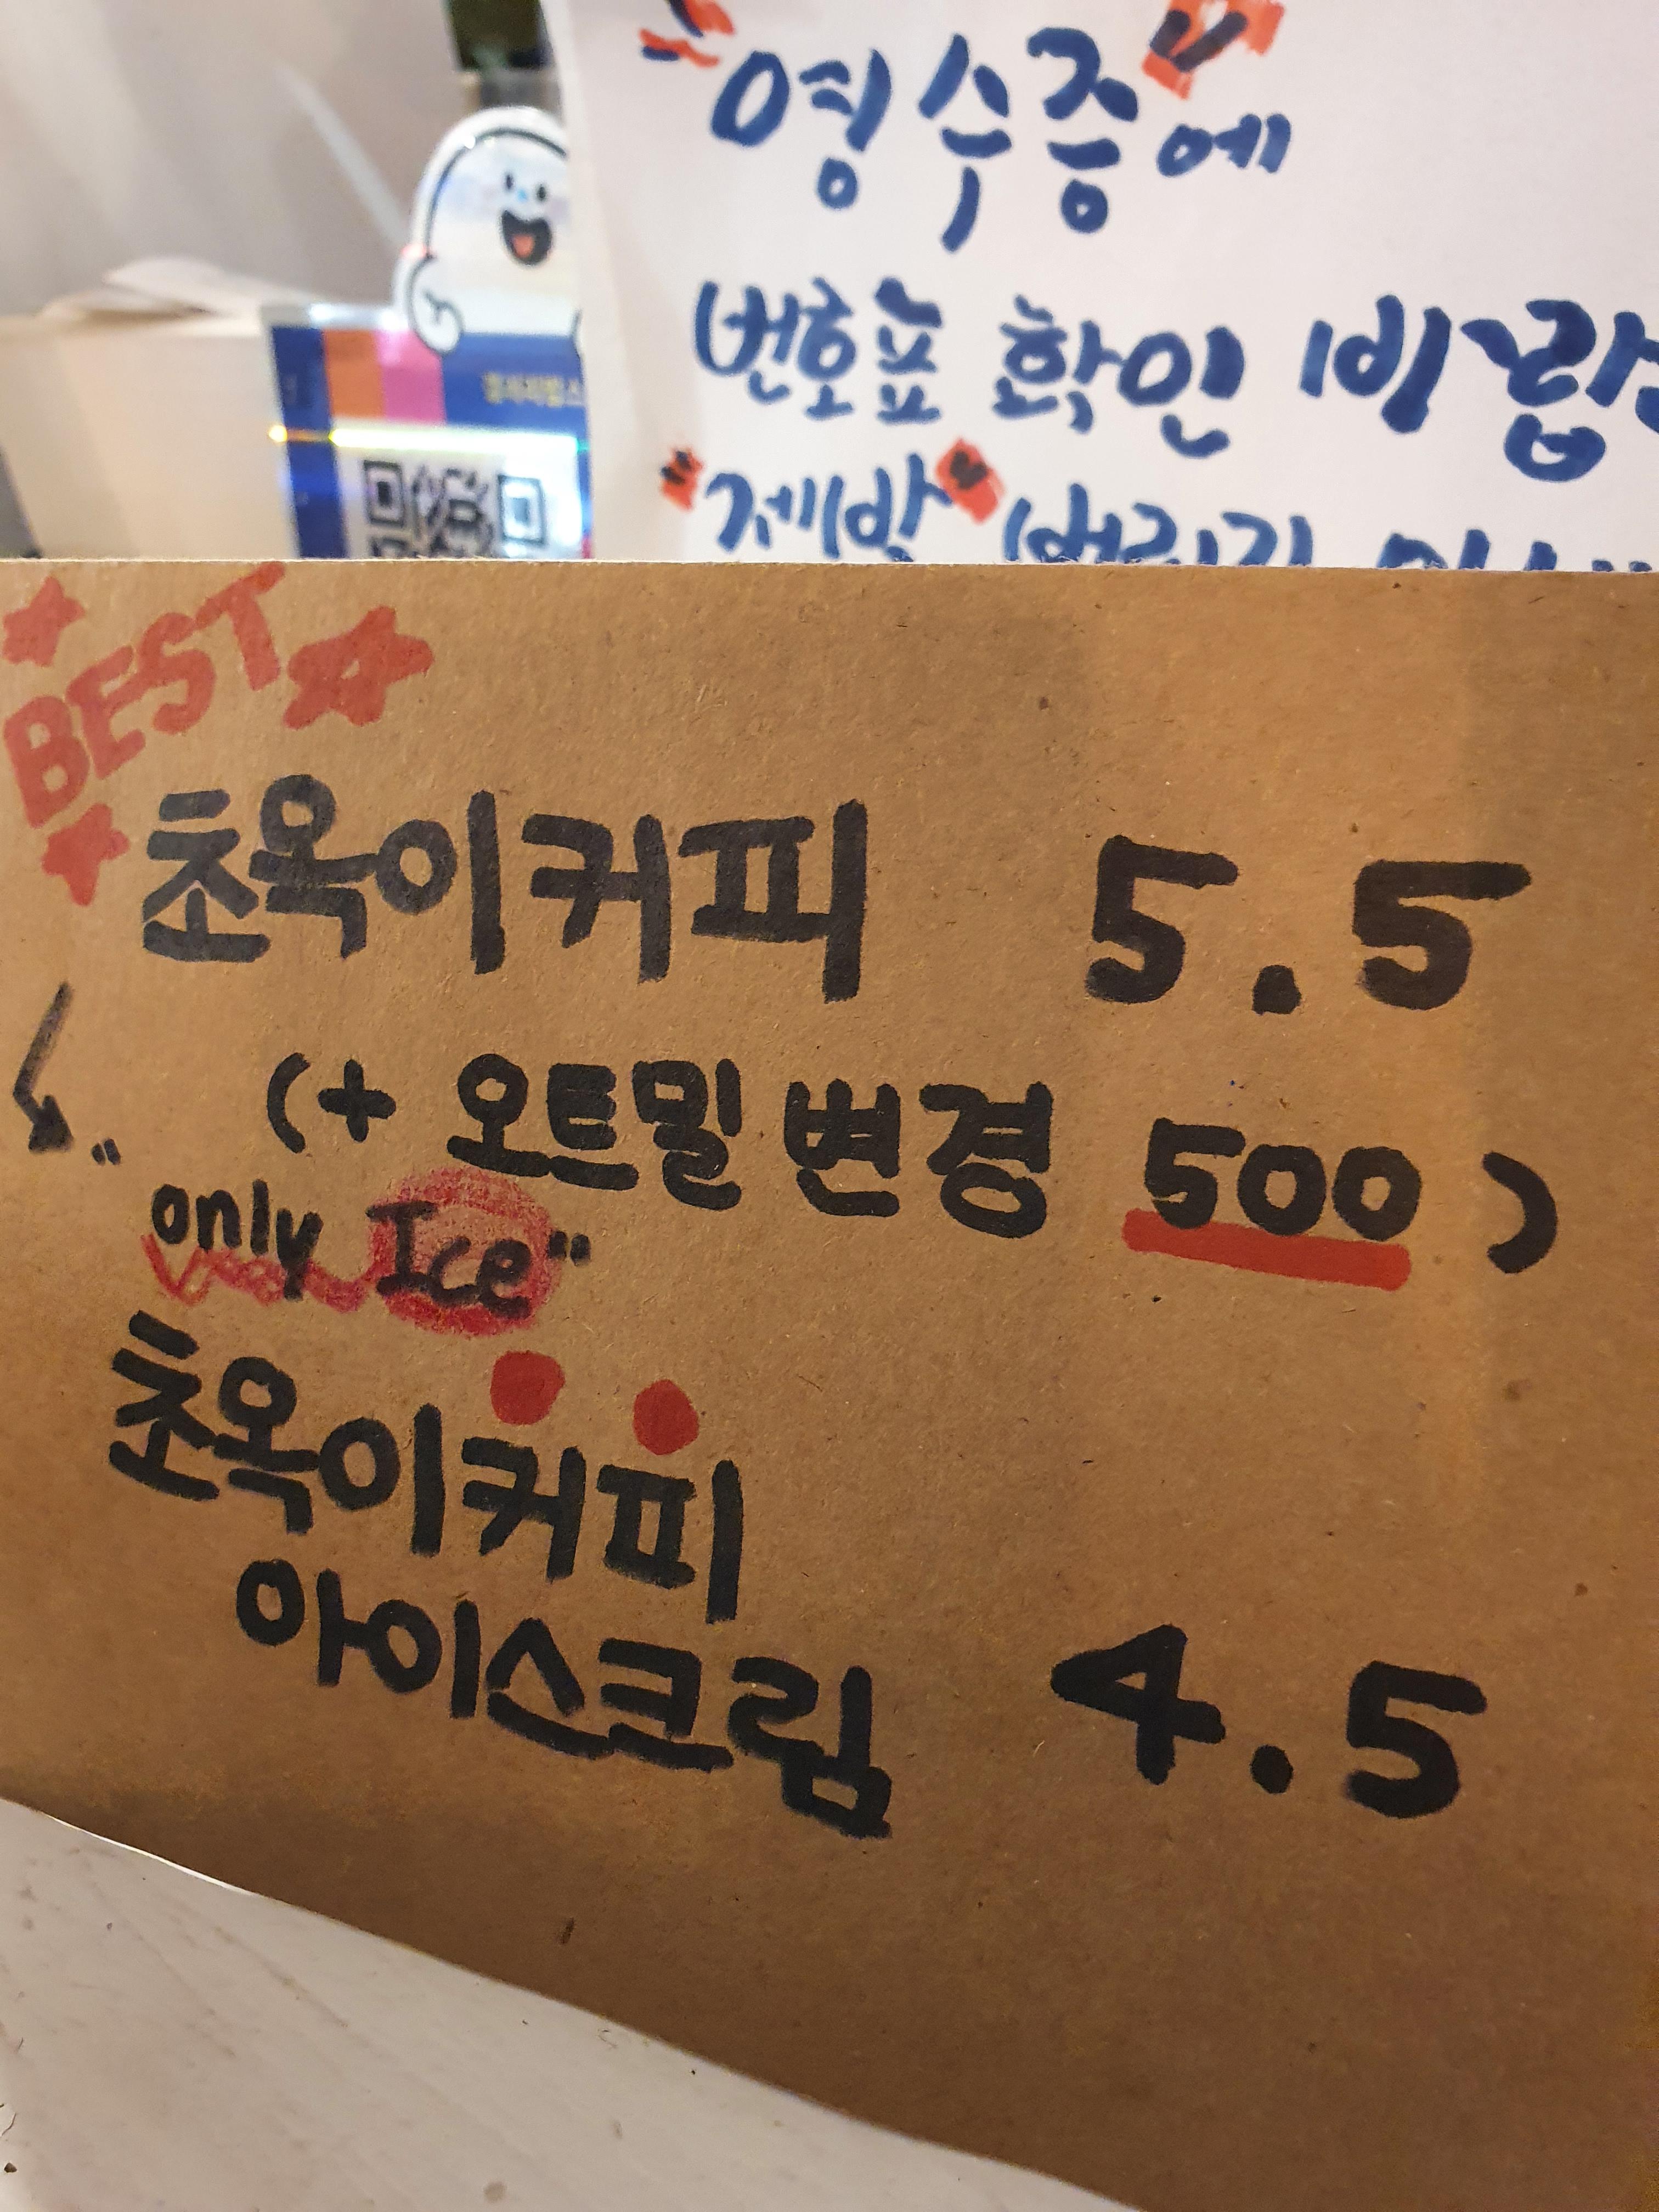 "영수증"에
번호표 확인 바랍
"제발"
BEST
초옥이커피 5.5
(+ 오트밀 변경 500)
"only Ice"
초옥이커피
아이스크림 4.5